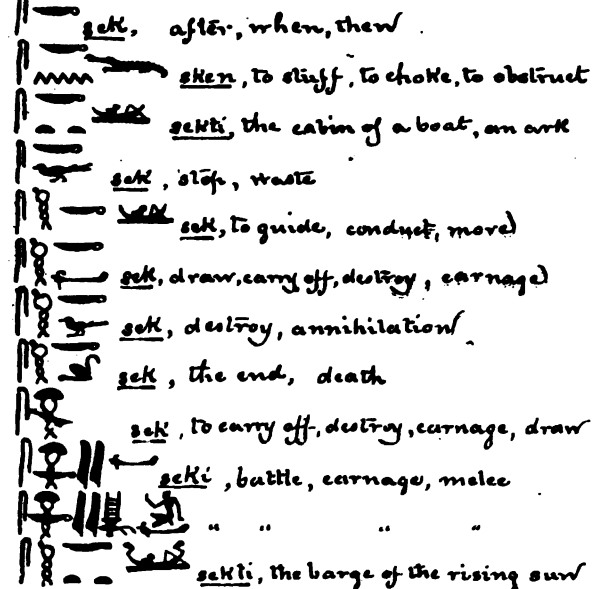 sek, after, when, then
sken, to stuff, to choke, to obstruct
sekti, the cabin of a boat, an ark
sek, stop, waste
sek, to guide, conduct, move
sek, draw, carry off, destroy, carnage
sek, destroy, annihilation
sek, the end, death
sek, to carry off, destroy, carnage, draw
seki, battle, carnage, melee
" " " "
sekti, the barge of the rising sun